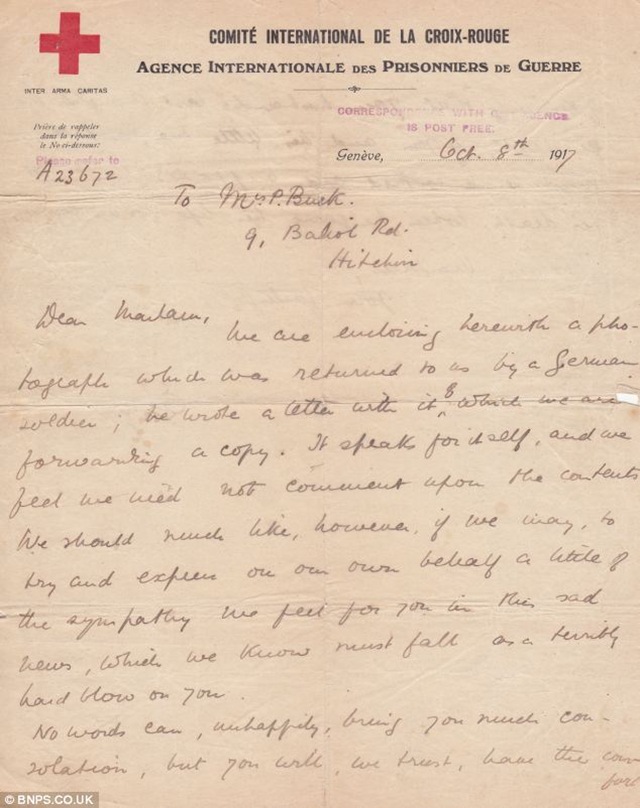 COMITÉ INTERNATIONAL DE LA CROIX-ROUGE
AGENCE INTERNATIONALE DES PRISONNIERS DE GUERRE
INTER ARMA CARITAS
Prière de rappeler
dans la réponse
le No ci-dessous:
Please refer to
A 23672
CORRESPONDENCE WITH
IS POST FREE.
Genève, Oct. 8th 1917
To Mrs P. Buck.
9, Baliol Rd.
Hitchin
Dear Madam,
We are enclosing herewith a pho-
tograph which was returned to us by a German
soldier; he wrote a letter with it, of which we are
forwarding a copy. It speaks for itself, and we
feel we need not comment upon the contents
We should much like, however, if we may, to
try and express on our own behalf a little of
the sympathy we feel for you in this sad
news, which we know must fall as a terribly
hard blow on you.
No words can, unhappily, bring you much con-
solation, but you will, we trust, have the com
fort
© BNPS.CO.UK